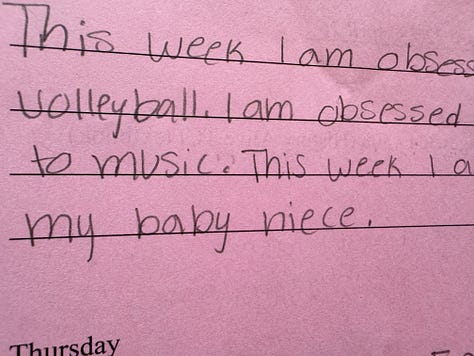 This week I am obsess
volleyball. I am obsessed
to music. This week I a
my baby niece.
Thursday